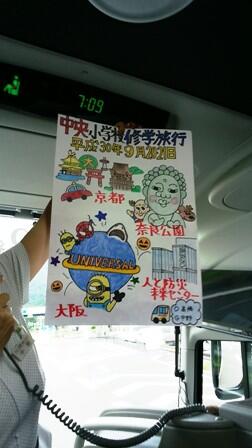 7:09
中央小学校修学旅行
平成30年9月20.21日
京都
奈良公園
UNIVERSAL
大阪
人と防災
未来センター